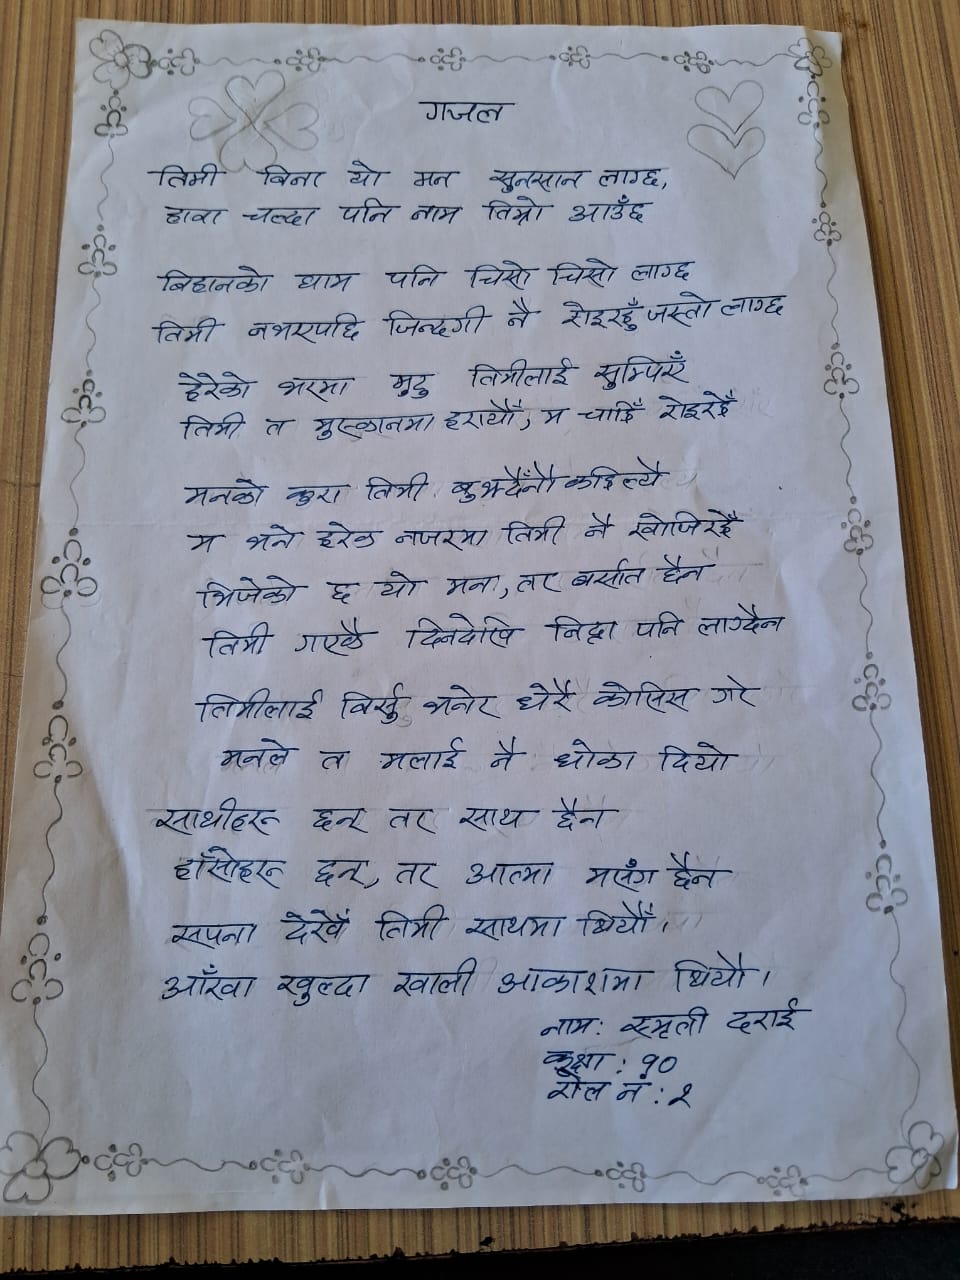 गजल
तिमी बिना यो मन सुनसान लाग्छ,
हावा चल्दा पनि नाम तिम्रो आउँछ
बिहानको घाम पनि चिसो चिसो लाग्छ
तिमी नभएपछि जिन्दगी नै रोइरहुँ जस्तो लाग्छ
हेरेको भरमा मुटु तिमीलाई सुम्पिएँ
तिमी त मुस्कानमा हरायौँ, म चाहिँ रोइरहेँ
मनको कुरा तिमी बुझ्दैनौ कहिल्यै
म भने हरेक नजरमा तिमी नै खोजिरहेँ
भिजेको छ यो मन, तर बर्सात छैन
तिमी गएकै दिनदेखि निद्रा पनि लाग्दैन
तिमीलाई बिर्सु भनेर धेरै कोसिस गरे
मनले त मलाई नै धोका दियो
साथीहरू छन् तर साथ छैन
हाँसोहरू छन्, तर आत्मा मसँग छैन
सपना देखेँ तिमी साथमा थियौँ।
आँखा खुल्दा खाली आकाशमा थियौ।
नाम: स्मृती दराई
कक्षा : १०
रोल नं : २